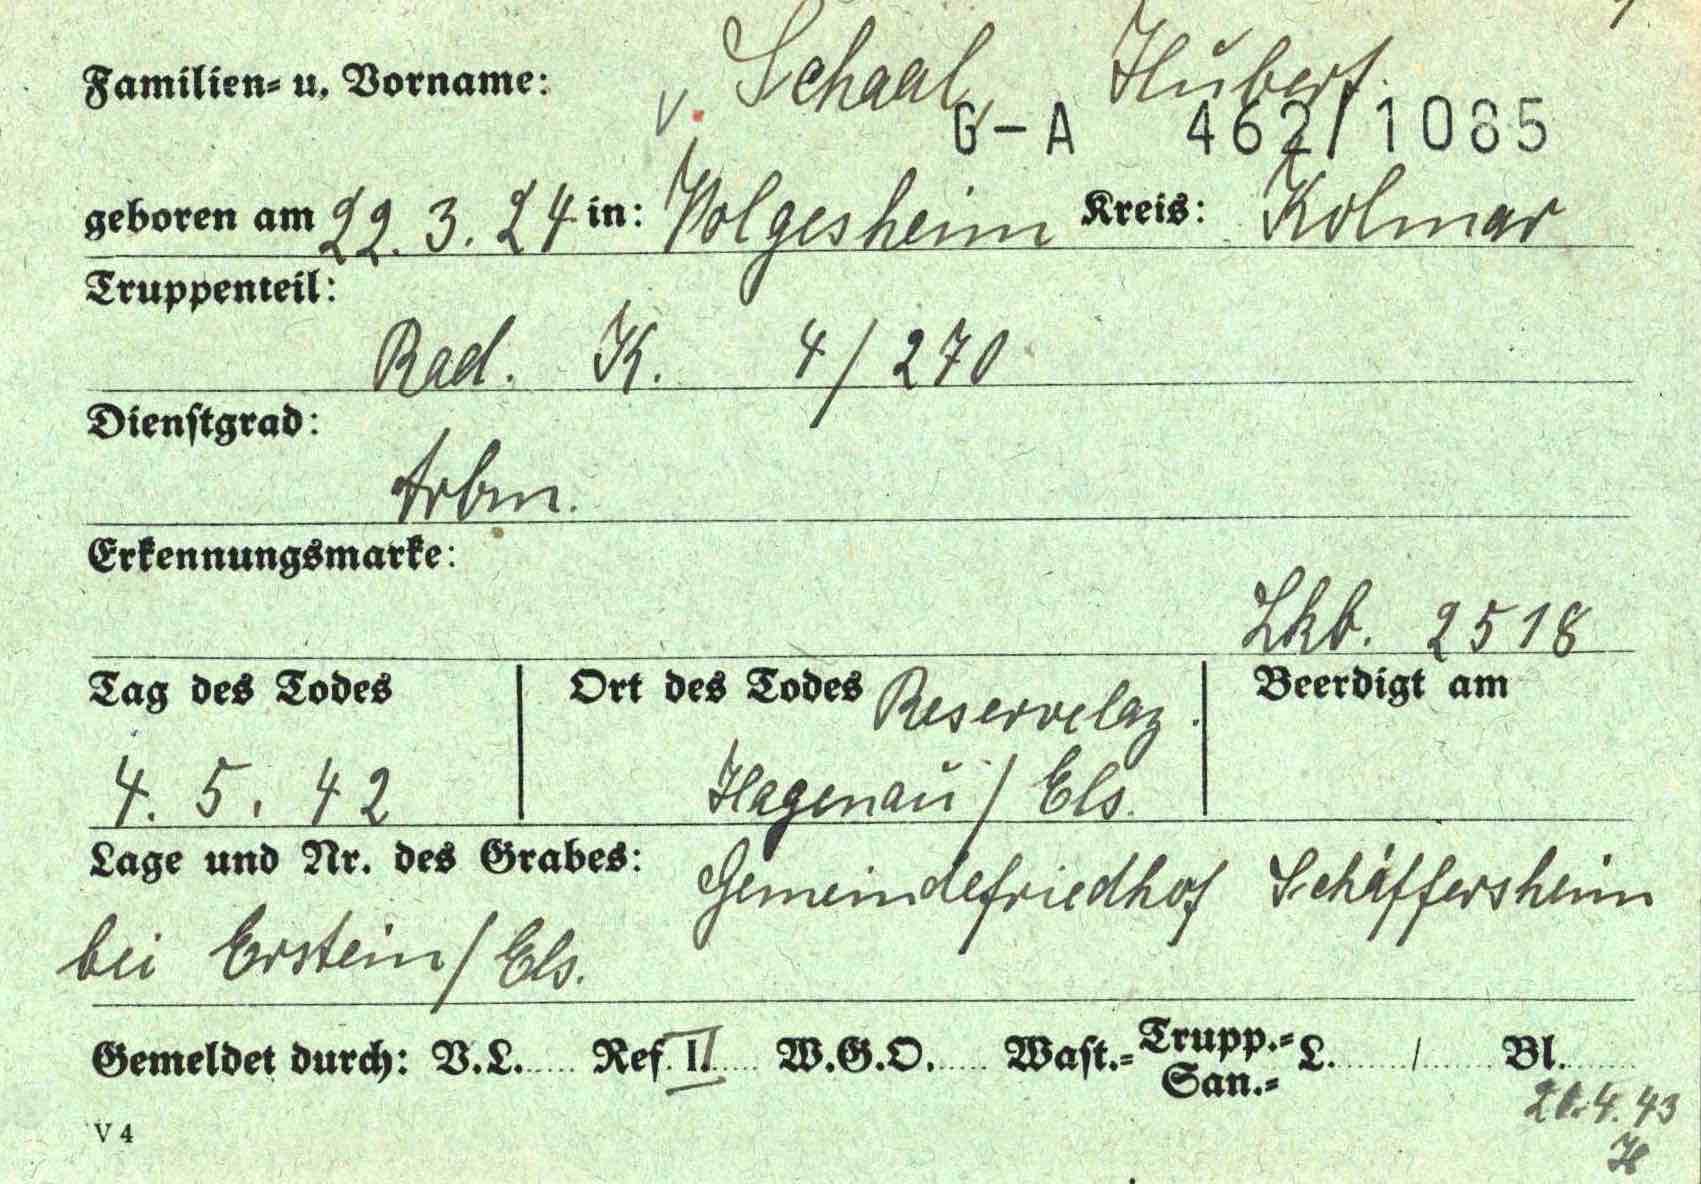 Familien- u. Vorname: v. Schaal Hubert
G-A 462/1085
geboren am 22.3.24 in: Wolgesheim Kreis: Kolmar
Truppenteil:
Rad. K. 4/270
Dienstgrad:
Arbm.
Erkennungsmarke:
Lkb. 2518
Tag des Todes Ort des Todes Reservelaz. Beerdigt am
4.5.42 Hagenau/Els.
Lage und Nr. des Grabes: Gemeindefriedhof Schäffersheim
bei Erstein/Els.
Gemeldet durch: V.L..... Ref. II.... W.G.O..... Wast.- Trupp.- San.- L....../...... Bl.......
4.43
V 4